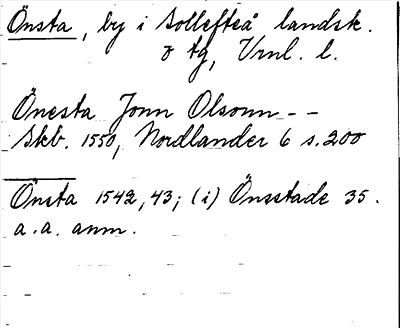 Önsta, by i Sollefteå landsk.
o tg, Vrnl. l.
Önesta Jonn Olsonn - -
Skb. 1550, Nordlander 6 s. 200
Önsta 1542, 43; (i) Önsstade 35.
a. a. anm.